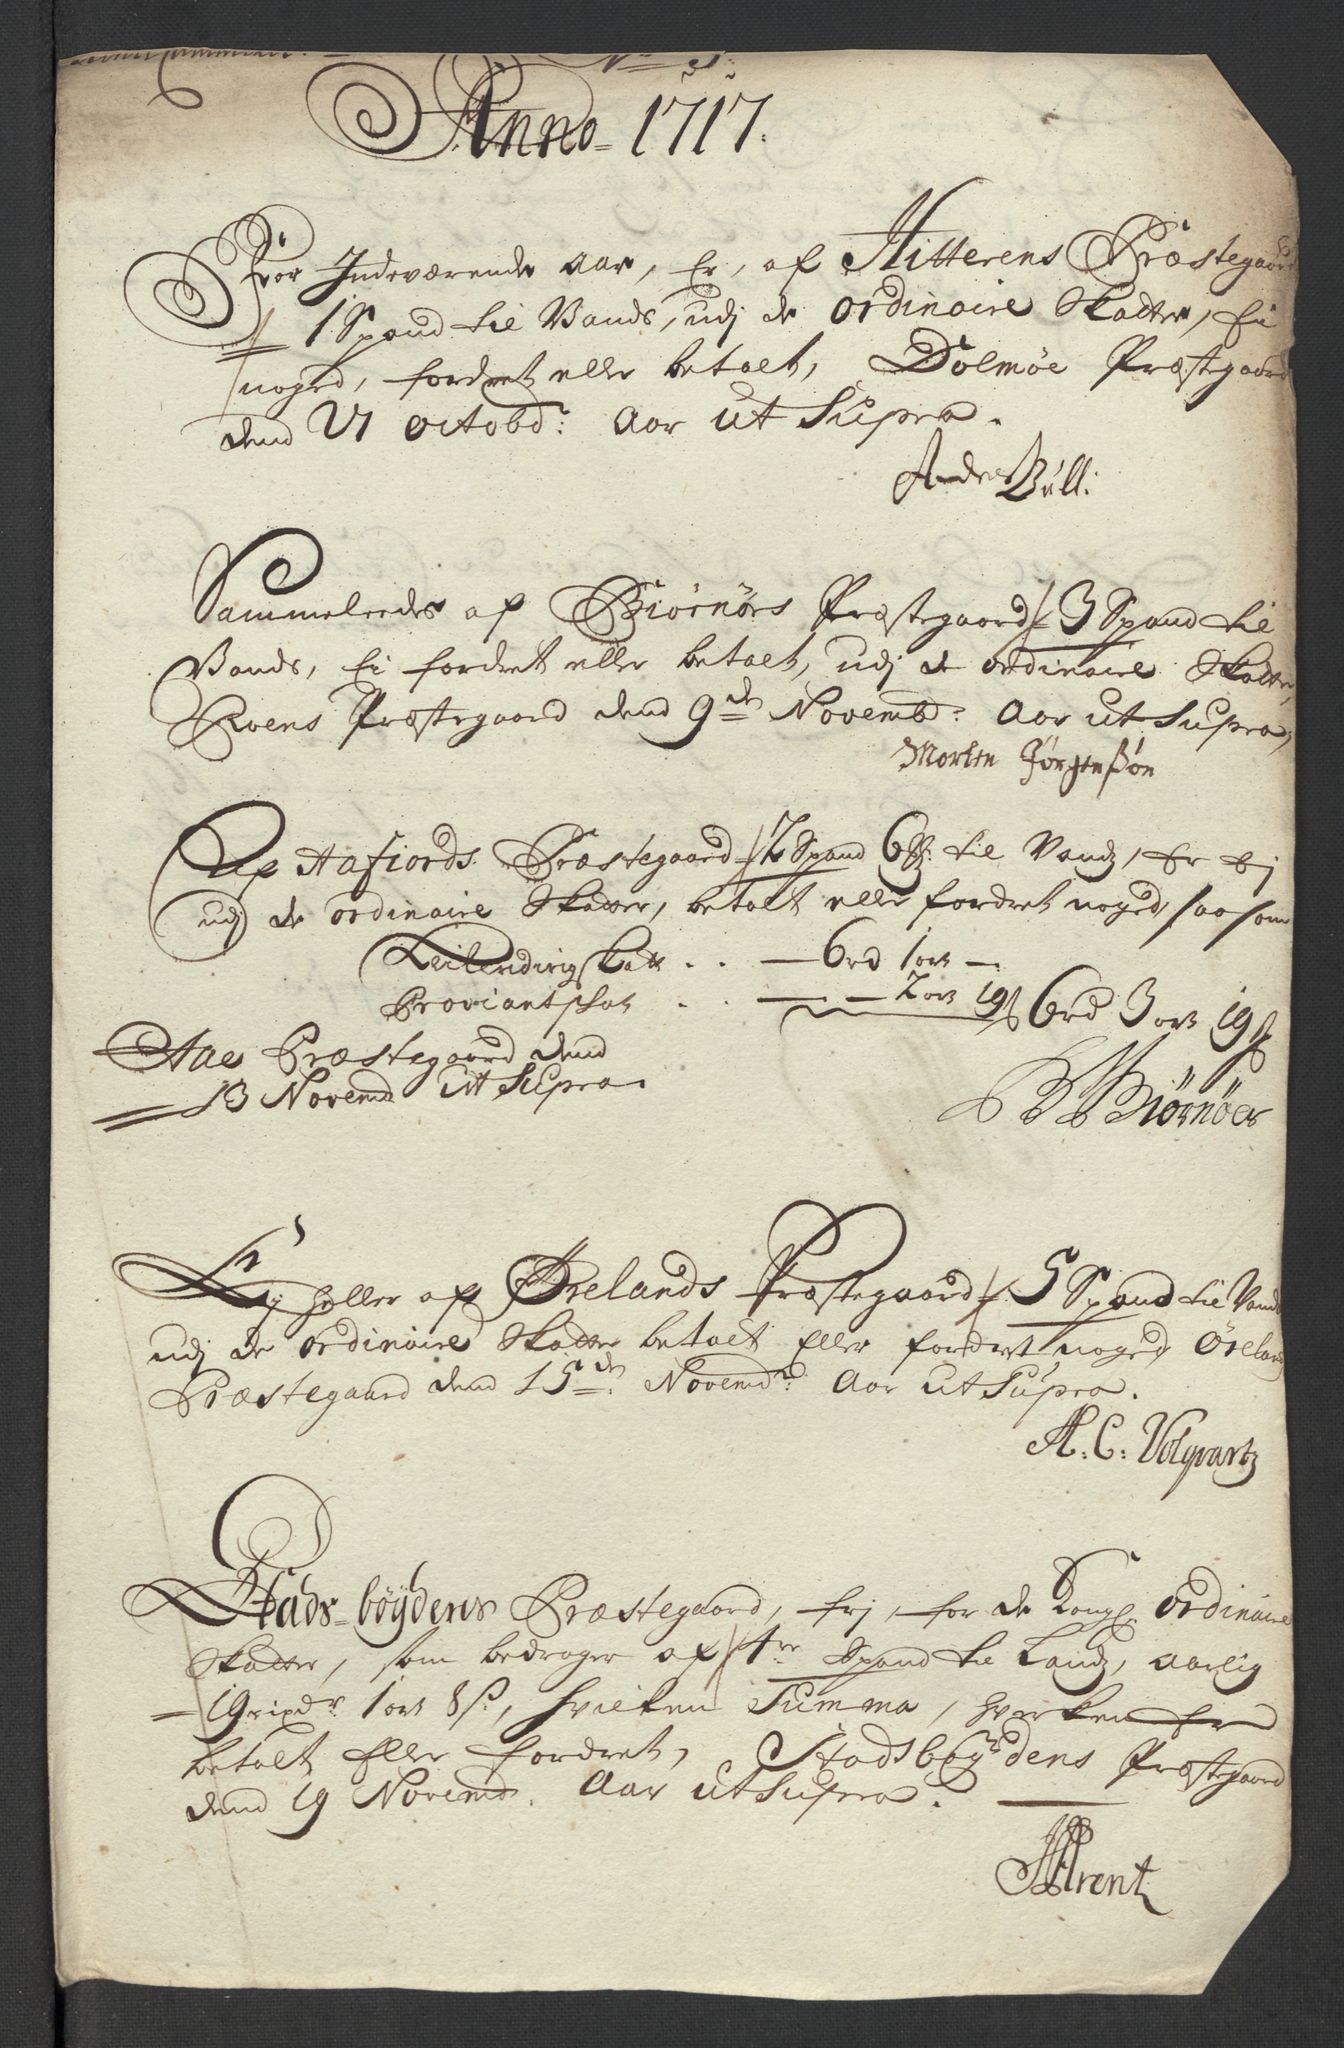 Anno 1717.
For Indeværende Aar, Er, af Hitterens Præstegaard
1 Spand til Vands, udj de ordinaire Skatter, Ei
noged, fordret eller betalt, Dolmøe Præstgaard
dend 21 Octobd: Aar ut Supra.
Anders Büll:
Sammeleedes af Biørnørs Præstegaard 3 Spand til
Vands, Ei fordret eller betalt, udj de ordinaire Skatter,
Roens Præstegaard dend 9de Novembd: Aar ut Supra,
Morten Jørgensßøn
Af Aafiords Præstegaard 2 Spand 6 til Vandz, Er Ej
udj de ordinaire Skatter, betalt eller fordret noged, saasom
Leilendings Skatt .. — 6rd 1ort —
Proviantskat .. — — 2ort 19s 6rd 3ort 19s
Aae Præstegaard dend
13 Novemd ut Supra.
Biørnøer
Ej heller af Ørelands Præstegaard 5 Spand til Vands
udj de ordinaire Skatter betalt Eller fordret noged, Øreland
Præstegaard dend 15de: Novemdr: Aar ut Supra.
A: C: Volqvartz
Stads-bøydens Præstegaard, frj, for de Kongl: ordinaire
Skatter, som bedrager af 4re Spand til Landz, aarlig
19 rixdr 1 ort 8s, hvilken Summa, hverken Er
betalt Eller fordret, Stadsbøydens Præstgaard
dend 19 Novemd. Aar ut Supra.
Arentz